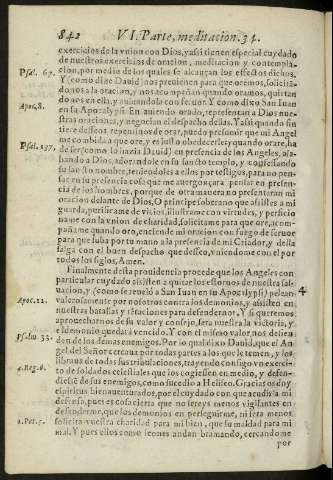 842 VI. Parte, meditacion. 34.
exercicios de la vnion con Dios, y assi tienen especial cuydado
de nuestros exercicios de oracion, meditacion y contempla-
Psal. 67. cion, por medio de los quales se alcançan los effectos dichos.
Y (como dize Dauid) nos preuienen para que oremos, solicitá-
donos a la oracion, y nos acompañan quando oramos, quitan
Apoc. 8. donos en ella, y auiuandola con feruor. Y como dixo San Iuan
en su Apocalypsi. En auiendo orado, representan a Dios nues-
tras oraciones, y negocian el despacho dellas. Y assi quando sin
tiere desseos repentinos de orar, puedo presumir que mi Angel
me combida a que ore, y es justo obedecerle: y quando orare, ha
Psal. 137. de ser (como dize Dauid) en presencia de los Angeles, ala-
bando a Dios, adorandole en su sancto templo, y confessando
su sancto nombre, teniendoles a ellos por testigos, para no pen-
sar en su presencia cosa que me auergonçara pensar en presen-
cia de los hombres, porque de otra manera no presentaran mi
oracion delante de Dios, O principe soberano que assistes a mi
guarda, purificame de vicios, illustrame con virtudes, y perficio
name con la vnion de charidad, solicitame para que ore, acom-
pañame quando oro, enciende mi oracion con fuego de feruor
para que suba por tu mano a la presencia de mi Criador, y della
salga con el buen despacho que desseo, vniendome con el por
todos los siglos, Amen.
Finalmente desta prouidencia procede que los Angeles con
particular cuydado assisten a quitar los estoruos de nuestra sal-
uacion, y (como se reueló a San Iuan en su Apocalypsi) pelean 4
Apoc. 12. valerosamente por nosotros contra los demonios, y assisten en
nuestras batallas y tétaciones para defendernos. Y si queremos
aprouecharnos de su valor y consejo, sera nuestra la victoria, y
el demonio quedará vencido. Y con el mismo valor, nos defien
Psalm. 33. den de los demas enemigos. Por lo qual dixo Dauid, que el An-
gel del Señor cercaua por todas partes a los que le temen, y los
libraua de todas sus tribulaciones, trayendo consigo vn exerci-
4. Reg. 6. to de soldados celestiales que los cogiessen en medio, y defen-
diesse de sus enemigos, como sucedio a Heliseo. Gracias os doy
espiritus bienauenturados, por el cuydado con que acudis a mi
defensa, pues es cosa cierta que no sereys menos vigilantes en
defenderme, que los demonios en perseguirme, ni sera menos
1. Pet. 5. solicita vuestra charidad para mi bien, que su maldad para mi
mal. Y pues ellos como leones andan bramando, cercandome
por